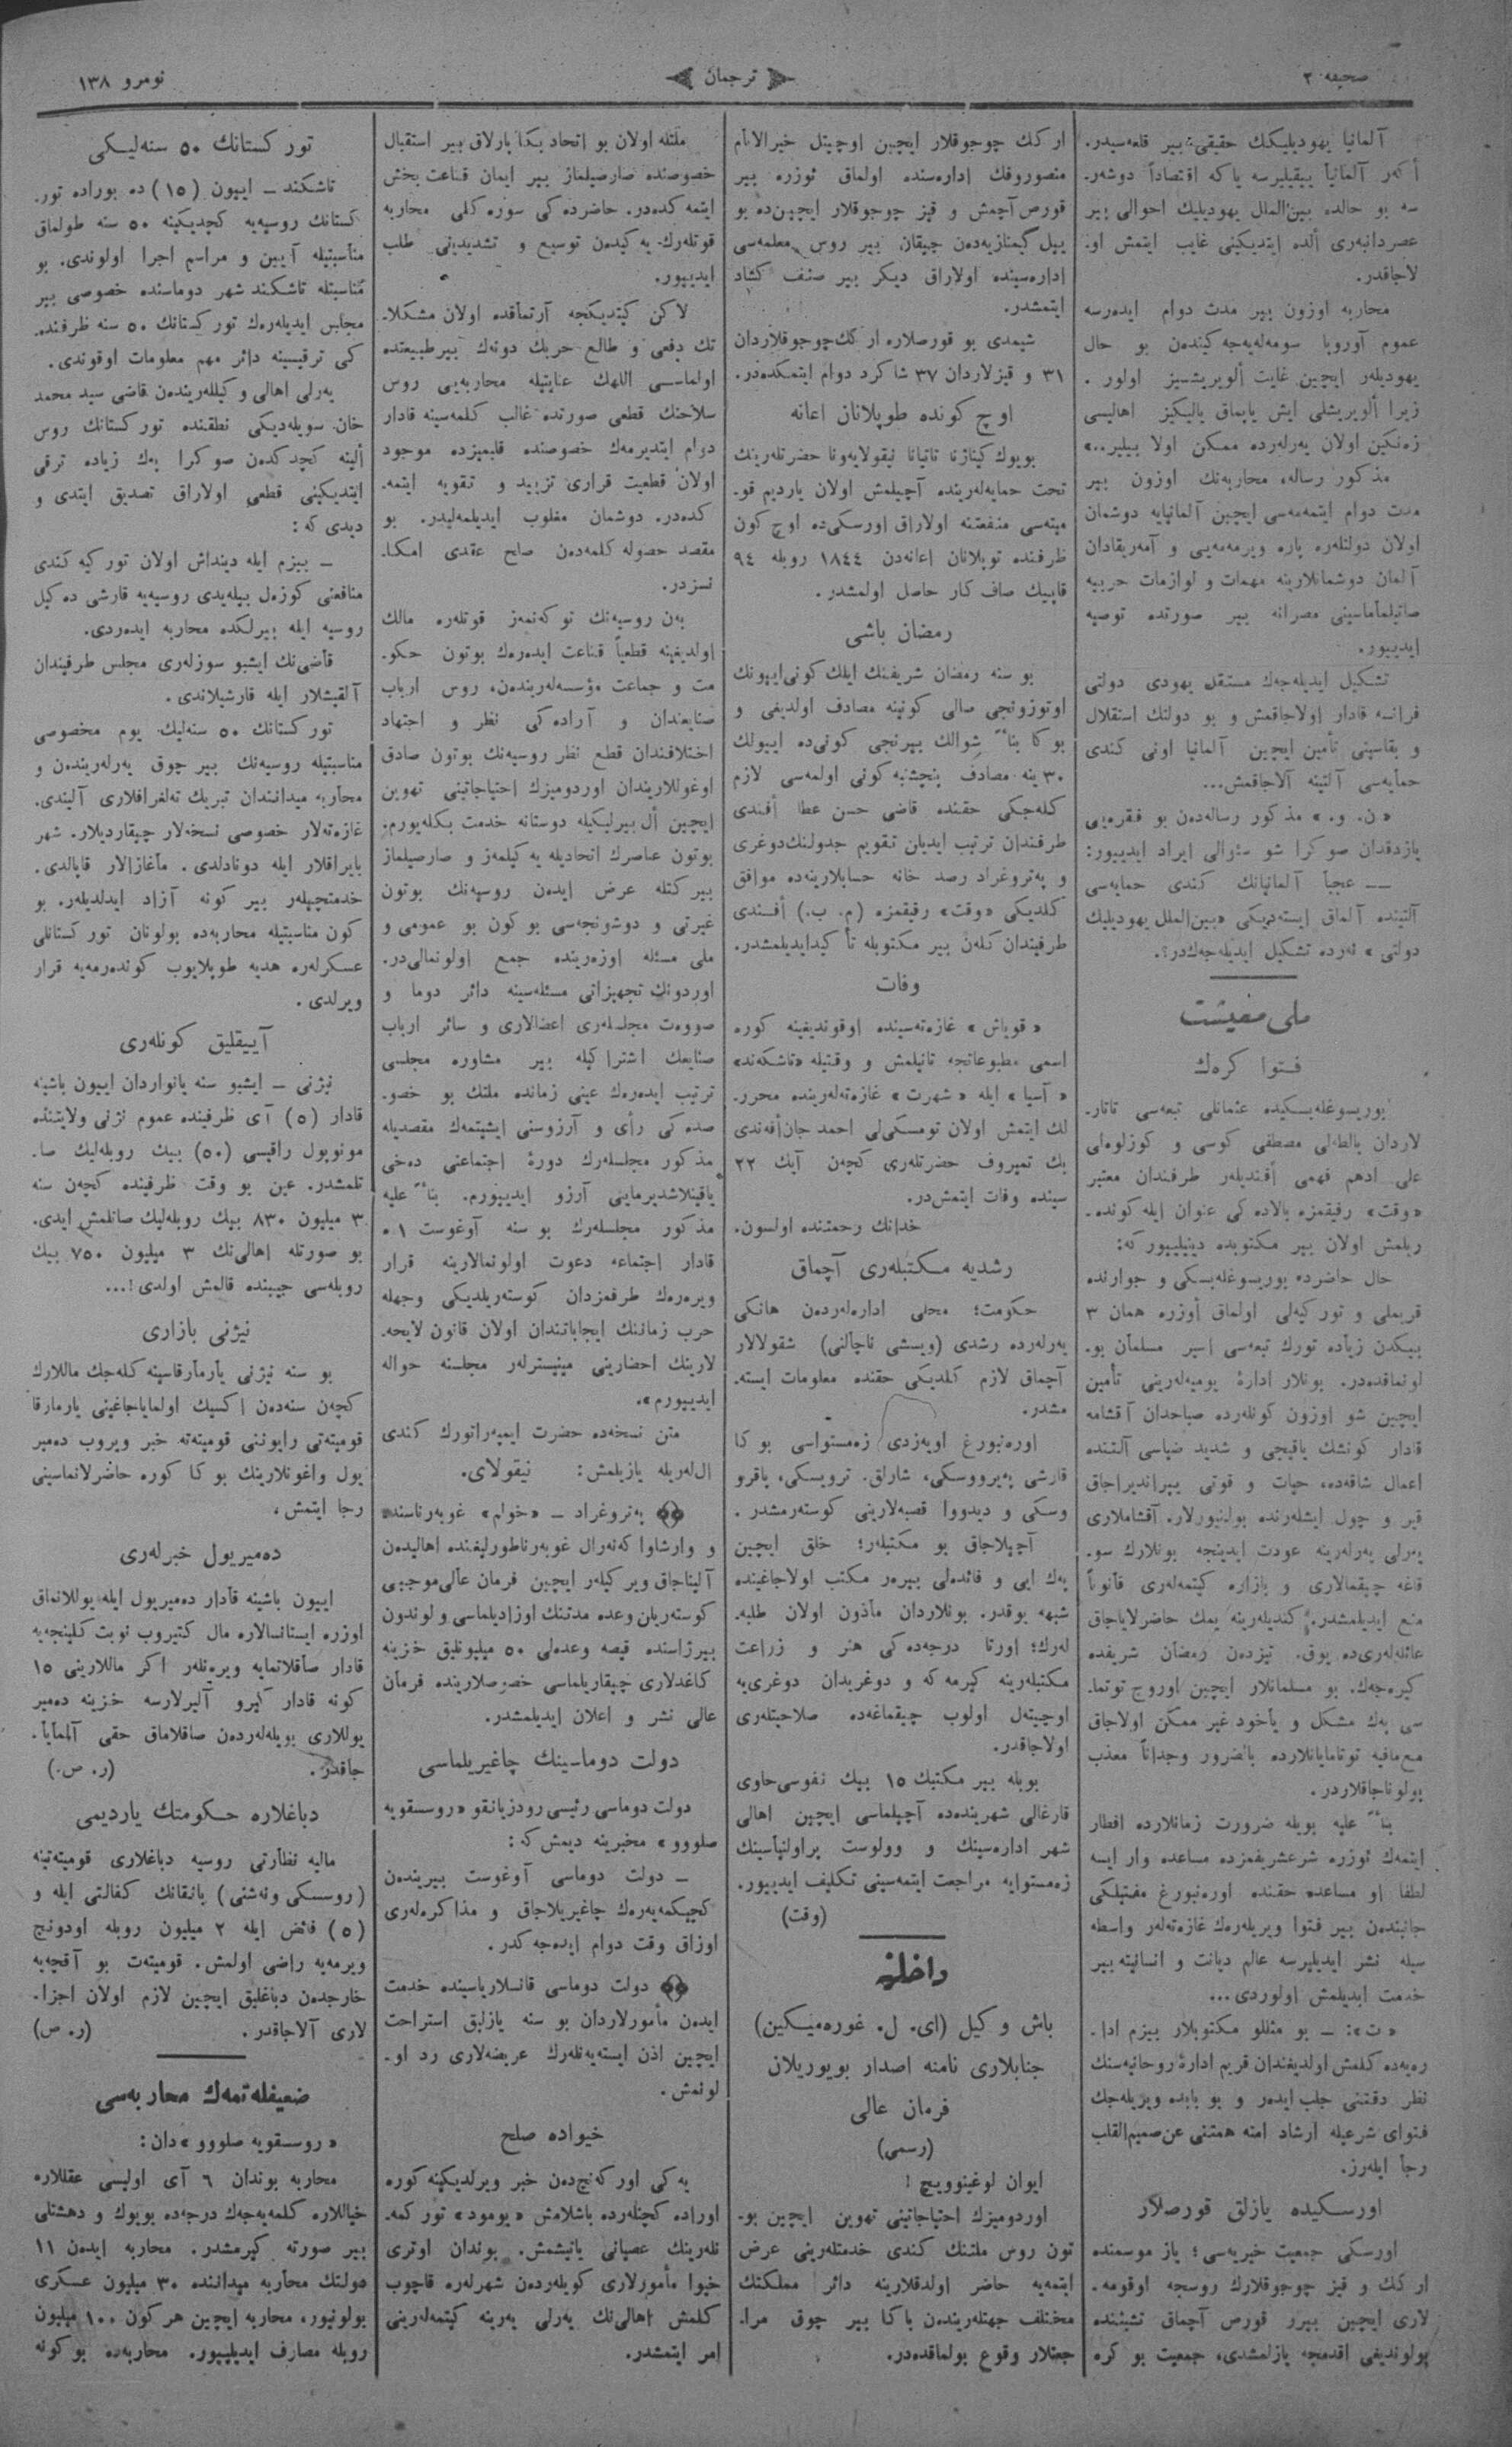 صحيفه ٢
ترجمان
نومرو ١٣٨
آلمانيا يهوديليكك حقيقى بير قلعه‌سيدر.
أكه‌ر آلمانيا ييقيليرسه ياكه اقتصاداً دوشه‌ر.
سه بو حالده بين‌الملل يهوديليك احوالى بير
عصردانبه‌رى ألده ايتديكينى غايب ايتمش او.
لاجاقدر.
محاربه اوزون بير مدت دوام ايده‌رسه
عموم آوروپا سومه‌له‌يه‌جه‌كيندن بو حال
يهوديله‌ر ايچين غايت ألويريشسيز اولور.
زيرا ألويريشلى ايش ياپماق ياليكيز اهاليسى
زه‌نكين اولان يه‌رله‌رده ممكن اولا بيلير..»
مذكور رساله، محاربه‌نك اوزون بير
مدت دوام ايتمه‌مه‌سى ايچين آلمانيايه دوشمان
اولان دولتله‌ره پاره ويرمه‌مه‌يى و آمه‌ريقادان
آلمان دوشمانلارينه مهمات و لوازمات حربيه
صاتيلماماسينى مصرانه بير صورتده توصيه
ايدييور.
تشكيل ايديله‌جه‌ك مستقل يهودى دولتى
فرانسه قادار اولاجاقمش و بو دولتك استقلال
و بقاسينى تأمين ايچين آلمانيا اونى كندى
حمايه‌سى آلتينه آلاجاقمش...
«ن. و.» مذكور رساله‌دن بو فقره‌يى
يازدقدان صوكرا شو سئوالى ايراد ايدييور:
— عجبا آلمانيانك كندى حمايه‌سى
آلتينده آلماق ايسته‌ديكى «بين‌الملل يهوديليك
دولتى» نه‌رده تشكيل ايديله‌جه‌كدر؟.
ملى معيشت
فتوا كره‌ك
بوريسوغله‌بسكيده عثمانلى تبعه‌سى تاتار.
لاردان يالطه‌لى مصطفى كوسى و كوزلوه‌لى
على ادهم فهمى أفنديله‌ر طرفندان معتبر
«وقت» رفيقمزه بالاده‌كى عنوان ايله كونده.
ريلمش اولان بير مكتوبده دينيلييور كه:
حال حاضرده بوريسوغله‌بسكى و جوارنده
قريملى و توركيه‌لى اولماق أوزره همان ٣
بيكدن زياده تورك تبعه‌سى اسير مسلمان بو.
لونماقده‌در. بونلار ادارهٔ يوميه‌له‌رينى تأمين
ايچين شو اوزون كونله‌رده صباحدان آقشامه
قادار كونشك ياقيجى و شديد ضياسى آلتنده
اعمال شاقه‌ده، حيات و قوتى ييپرانديراجاق
قير و چول ايشله‌رنده بولنيورلار. آقشاملارى
يه‌رلى يه‌رله‌رينه عودت ايدينجه بونلارك سو.
قاغه چيقمالارى و بازاره كيتمه‌له‌رى قانوناً
منع ايديلمشدر. كنديله‌رينه يمك حاضرلاياجاق
عائله‌له‌رى‌ده يوق. تيزدن رمضان شريفده
كيره‌جه‌ك. بو مسلمانلار ايچين اوروج توتما.
سى په‌ك مشكل و ياخود غير ممكن اولاجاق
مع‌مافيه توتامايانلارده بالضرور وجداناً معذب
بولوناجاقلاردر.
بناءً عليه بويله ضرورت زمانلارده افطار
ايتمه‌ك ئوزره شرعشريفمزده مساعده وار ايسه
لطفا او مساعده حقنده اوره‌نبورغ مفتيلكى
جانبندن بير فتوا ويريله‌رك غازه‌ته‌له‌ر واسطه
سيله نشر ايديليرسه عالم ديانت و انسانيته بير
خدمت ايديلمش اولوردى...
«ت»: — بو مثللو مكتوبلار بيزم ادا.
ره‌يه‌ده كلمش اولديغندان قريم ادارهٔ روحانيه‌سنك
نظر دقتنى جلب ايده‌ر و بو بابده ويريله‌جك
فتواى شرعيله ارشاد امته همتنى عن‌صميم‌القلب
رجأ ايله‌رز.
اورسكيده يازلق قورصلار
اورسكى جمعيت خيريه‌سى؛ ياز موسمنده
ار كك و قيز چوجوقلارك روسجه اوقومه.
لارى ايچين بيرر قورص آچماق تشبثنده
بولونديغى اقدمجه يازلمشدى، جمعيت بو كره
ار كك چوجوقلار ايچين اوچيتل خيرالانام
منصوروفك اداره‌سنده اولماق ئوزره بير
قورص آچمش و قيز چوجوقلار ايچين‌ده بو
ييل گيمنازيه‌دن چيقان بير روس معلمه‌سى
اداره‌سينده اولاراق ديكر بير صنف كشاد
ايتمشدر.
شيمدى بو قورصلاره ار كك‌چوجوقلاردان
٣١ و قيزلاردان ٣٧ شاكرد دوام ايتمكده‌در.
اوچ كونده طوپلانان اعانه
بويوك كينازنا تاتيانا نيقولايه‌ونا حضرتله‌رينك
تحت حمايه‌له‌رينده آچيلمش اولان يارديم قو.
ميته‌سى منفعتنه اولاراق اورسكى‌ده اوچ كون
ظرفنده توپلانان اعانه‌دن ١٨٤٤ روبله ٩٤
قاپيك صاف كار حاصل اولمشدر.
رمضان باشى
بو سنه رمضان شريفنك ايلك كونى‌اييونك
اوتوزونجى صالى كونينه مصادف اولديغى و
بوكا بناءً شوالك بيرنجى كونى‌ده ايبولك
٣٠ ينه مصادف پنجشنبه كونى اولمه‌سى لازم
كله‌جكى حقنده قاضى حسن عطا أفندى
طرفندان ترتيب ايديلن تقويم جدولنك‌دوغرى
و په‌تروغراد رصد خانه حسابلارينه‌ده موافق
كلديكى «وقت» رفيقمزه (م. ب.) أفندى
طرفيندان كلن بير مكتوبله تأكيدايديلمشدر.
وفات
«قوياش» غازه‌ته‌سينده اوقونديغينه كوره
اسمى مطبوعاتجه تانيلمش و وقتيله «تاشكه‌ند»
«آسيا» ايله «شهرت» غازه‌ته‌له‌رينده محرر.
لك ايتمش اولان تومسكى‌لى احمد جان‌أفه‌ندى
بك تميروف حضرتله‌رى كچه‌ن آيك ٢٢
سينده وفات ايتمش‌در.
خدانك رحمتنده اولسون.
رشديه مكتبله‌رى آچماق
حكومت؛ محلى اداره‌له‌ردن هانكى
يه‌رله‌رده رشدى (ويسشى ناچالنى) شقولالار
آچماق لازم كلديكى حقنده معلومات ايسته.
مشدر.
اوره‌نبورغ اويه‌زدى زه‌مستواسى بوكا
قارشى په‌يرووسكى، شارلق. ترويسكى، ياقرو
وسكى و ديدووا قصبه‌لارينى كوسته‌رمشدر.
آچيلاجاق بو مكتبله‌ر؛ خلق ايچين
په‌ك ايى و فائده‌لى بيره‌ر مكتب اولاجاغينده
شبهه يوقدر. بونلاردان مأذون اولان طلبه.
له‌رك؛ اورتا درجه‌ده‌كى هنر و زراعت
مكتبله‌رينه كيرمه‌كه و دوغريدان دوغرى‌يه
اوچيته‌ل اولوب چيقماغه‌ده صلاحيتله‌رى
اولاجاقدر.
بويله بير مكتبك ١٥ بيك نفوسى‌حاوى
قارغالى شهرينده‌ده آچيلماسى ايچين اهالى
شهر اداره‌سينك و وولوست پراولنياسينك
زه‌مستوايه مراجعت ايتمه‌سينى تكليف ايدييور.
(وقت)
داخليّه
باش وكيل (اى. ل. غوره‌ميكين)
جنابلارى نامنه اصدار بويوريلان
فرمان عالى
(رسمى)
ايوان لوغينوويچ!
اوردوميزك احتياجاتينى تهوين ايچين بو.
تون روس ملتنك كندى خدمتله‌رينى عرض
ايتمه‌يه حاضر اولدقلارينه دائر مملكتك
مختلف جهتله‌ريندن باكا بير چوق مرا.
جعتلار وقوع بولماقده‌در.
ملتله اولان بو اتحاد بكا پارلاق بير استقبال
خصوصنده صارصيلماز بير ايمان قناعت بخش
ايتمه‌كده‌در. حاضرده‌كى سوره‌كلى محاربه
قوتله‌رك‌يه‌كيدن توسيع و تشديدينى طلب
ايدييور.
لاكن كيتديكجه آرتماقده اولان مشكلا.
تك دفعى و طالع حربك دونه‌ك بيرطبيعتده
اولماسى اللهك عنايتيله محاربه‌يى روس
سلاحنك قطعى صورتده غالب كلمه‌سينه قادار
دوام ايتديرمه‌ك خصوصنده قلبميزده موجود
اولان قطعيت قرارى تزييد و تقويه ايتمه.
كده‌در. دوشمان مغلوب ايديلمه‌ليدر. بو
مقصد حصوله كلمه‌دن صلح عقدى امكا.
نسزدر.
به‌ن روسيه‌نك توكه‌نمه‌ز قوتله‌ره مالك
اولديغينه قطعياً قناعت ايده‌رك بوتون حكو.
مت و جماعت مؤسسه‌له‌ريندن، روس ارباب
صنايعندان و آراده‌كى نظر و اجتهاد
اختلافندان قطع نظر روسيه‌نك بوتون صادق
اوغوللاريندان اوردوميزك احتياجاتينى تهوين
ايچين أل بيرليكيله دوستانه خدمت بكله‌يورم.
بوتون عناصرك اتحاديله يه‌كيلمه‌ز و صارصيلماز
بير كتله عرض ايدن روسيه‌نك بوتون
غيرتى و دوشونجه‌سى بوكون بو عمومى و
ملى مسئله اوزه‌رينده جمع اولونمالى‌در.
اوردونك تجهيزاتى مسئله‌سينه دائر دوما و
صووه‌ت مجلسله‌رى اعضالارى و سائر ارباب
صنايعك اشتراكيله بير مشاوره مجلسى
ترتيب ايده‌رك عينى زمانده ملتك بو خصو.
صده‌كى رأى و آرزوسنى ايشيتمه‌ك مقصديله
مذكور مجلسله‌رك دورهٔ اجتماعنى ده‌خى
ياقينلاشديرمايى آرزو ايدييورم. بناءً عليه
مذكور مجلسله‌رك بو سنه آوغوست ١ ه
قادار اجتماعه دعوت اولونمالارينه قرار
ويره‌رك طرفمزدان كوسته‌ريلديكى وجهله
حرب زماننك ايجاباتندان اولان قانون لايحه.
لارينك احضارينى مينيسترله‌ر مجلسنه حواله
ايدييورم».
متن نسخه‌ده حضرت ايمپه‌راتورك كندى
ال‌له‌ريله يازيلمش: نيقولاى.
په‌تروغراد — «خولم» غوبه‌رناسنده
و وارشاوا كه‌نه‌رال غوبه‌رناطورليغنده اهاليدن
آليناجاق ويركيله‌ر ايچين فرمان عالى‌موجبى
كوسته‌ريلن وعده مدتنك اوزاديلماسى و لوندون
بيرژاسنده قيصه وعده‌لى ٥٠ ميليونليق خزينه
كاغدلارى چيقاريلماسى خصوصلارينده فرمان
عالى نشر و اعلان ايديلمشدر.
دولت دوماسينك چاغيريلماسى
دولت دوماسى رئيسى رودزيانقو «روسسقويه
صلووو» مخبرينه ديمش كه:
— دولت دوماسى آوغوست بيريندن
كجيكمه‌يه‌رك چاغيريلاجاق و مذاكره‌له‌رى
اوزاق وقت دوام ايده‌جه‌كدر.
دولت دوماسى قانسلارياسينده خدمت
ايدن مأمورلاردان بو سنه يازليق استراحت
ايچين اذن ايسته‌يه‌نله‌رك عريضه‌لارى رد او.
لونمش.
خيواده صلح
يه‌كى اوركه‌نج‌دن خبر ويرلديكينه كوره
اوراده كچنله‌رده باشلامش «يومود» تور كمه.
نله‌رينك عصيانى ياتيشمش. بوندان اوترى
خيوا مأمورلارى كويله‌ردن شهرله‌ره قاچوب
كلمش اهالى‌نك يه‌رلى يه‌رينه كيتمه‌له‌رينى
امر ايتمشدر.
تور كستانك ٥٠ سنه‌ليكى
تاشكند — ايپون (١٥) ده بوراده تور.
كستانك روسيه‌يه كچديكينه ٥٠ سنه طولماق
مناسبتيله آيين و مراسم اجرا اولوندى. بو
مناسبتله تاشكند شهر دوماسنده خصوصى بير
مجلس ايديله‌رك تور كستانك ٥٠ سنه ظرفنده.
كى ترقيسينه دائر مهم معلومات اوقوندى.
يه‌رلى اهالى وكيلله‌ريندن قاضى سيد محمد
خان سويله‌ديكى نطقنده تور كستانك روس
ألينه كچدكدن صوكرا په‌ك زياده ترقى
ايتديكينى قطعى اولاراق تصديق ايتدى و
ديدى كه:
— بيزم ايله دينداش اولان توركيه كندى
منافعنى كوزه‌ل بيله‌يدى روسيه‌يه قارشى ده‌كيل
روسيه ايله بيرلكده محاربه ايده‌ردى.
قاضى‌نك ايشبو سوزله‌رى مجلس طرفيندان
آلقيشلار ايله قارشيلاندى.
تور كستانك ٥٠ سنه‌ليك يوم مخصوصى
مناسبتيله روسيه‌نك بير چوق يه‌رله‌ريندن و
محاربه ميدانندان تبريك ته‌لغرافلارى آليندى.
غازه‌ته‌لار خصوصى نسخه‌لار چيقارديلار. شهر
بايراقلار ايله دونادلدى. مأغازالار قاپالدى.
خدمتچيله‌ر بير كونه آزاد ايدلديله‌ر. بو
كون مناسبتيله محاربه‌ده بولونان تور كستانلى
عسكرله‌ره هديه طوپلايوب كونده‌رمه‌يه قرار
ويرلدى.
آييقليق كونله‌رى
نيژنى — ايشبو سنه يانواردان ايپون باشينه
قادار (٥) آى ظرفينده عموم نژنى ولايتنده
مونوپول راقيسى (٥٠) بيك روبله‌ليك صا.
تلمشدر. عين بو وقت ظرفينده كچه‌ن سنه
٣ ميليون ٨٣٠ بيك روبله‌ليك صاتلمش ايدى.
بو صورتله اهالى‌نك ٣ ميليون ٧٥٠ بيك
روبله‌سى جيبنده قالمش اولدى!...
نيژنى بازارى
بو سنه نيژنى يارمارقاسينه كله‌جك ماللارك
كچه‌ن سنه‌دن اكسيك اولماياجاغينى يارمارقا
قوميته‌تى رايوننى قوميته‌ته خبر ويروب ده‌مير
يول واغونلارينك بوكا كوره حاضرلانماسينى
رجا ايتمش.
ده‌ميريول خبرله‌رى
ايپون باشينه قادار ده‌ميريول ايله يوللانماق
اوزره ايستانسالاره مال كتيروب نوبت كلينجه‌يه
قادار صاقلاتمايه ويره‌نله‌ر اكر ماللارينى ١٥
كونه قادار كيرو آليرلارسه خزينه ده‌مير
يوللارى بويله‌له‌ردن صاقلاماق حقى آلمايا.
جاقدر. (ر. ص.)
دباغلاره حكومتك يارديمى
ماليه نظارتى روسيه دباغلارى قوميته‌تينه
(روسسكى ونه‌شنى) بانقانك كفالتى ايله و
(٥) فائض ايله ٢ ميليون روبله اودونج
ويرمه‌يه راضى اولمش. قوميته‌ت بو آقچه‌يه
خارجدن دباغليق ايچين لازم اولان اجزا.
لارى آلاجاقدر. (ر. ص)
ضعيفله‌تمه‌ك محاربه‌سى
«روسسقويه صلووو» دان:
محاربه بوندان ٦ آى اولينى عقللاره
خياللاره كلمه‌يه‌جه‌ك درجه‌ده بويوك و دهشتلى
بير صورته كيرمشدر. محاربه ايدن ١١
دولتك محاربه ميداننده ٣٠ ميليون عسكرى
بولونيور، محاربه ايچين هر كون ١٠٠ ميليون
روبله مصارف ايديلييور. محاربه‌ده بوكونه